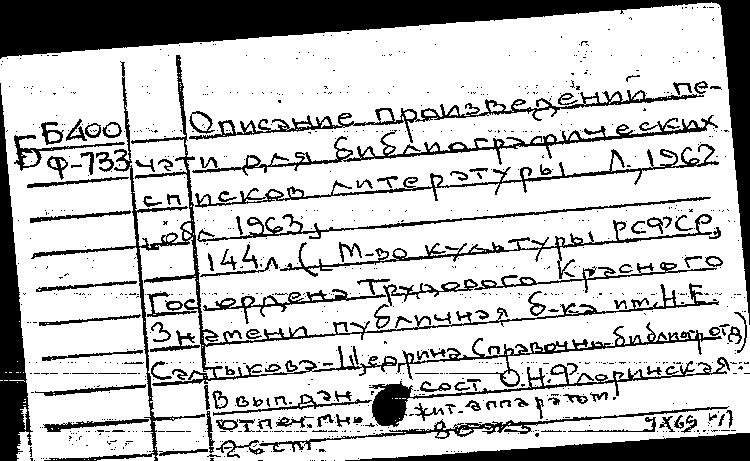 Б Б400
Ф-733
Описание произведений пе-
чати для библиографических
списков литературы Л, 1962
, обл 1963,.
144л. (, М-во культуры РСФСР,
Гос ордена Трудового Красного
Знамени публичная б-ка им. Н-Е.
Салтыкова-Щедрина. Справочно-библиогр отд)
В вып. дан. сост. О.Н.Флоринская.
Отпеч. мн. жит. аппаратом.
80 экз.
26 ст.